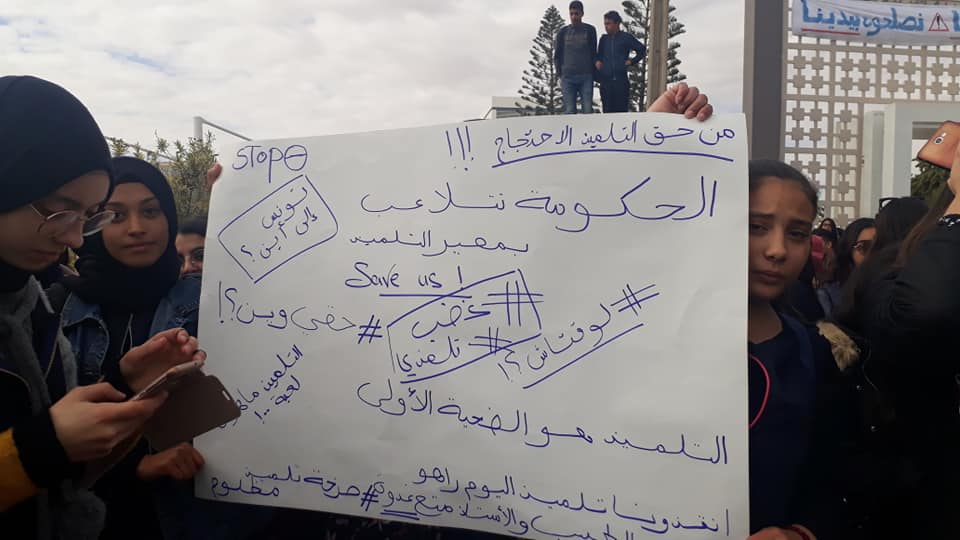 نصلحو بيدينا
من حق التلميذ الاحتجاج !!!
STOP
الحكومة تتلاعب
بمصير التلميذ
تونس
إلى أين؟
Save us !
# غضب
# تلمذي
# حقي وين؟!
# لوقتاش؟!
التلميذ ماهوش
لعبة
التلميذ هو الضحية الأولى
انقذونا تلميذ اليوم راهو
الطبيب والأستاذ متع غدوة
# صرخة تلميذ
مظلوم